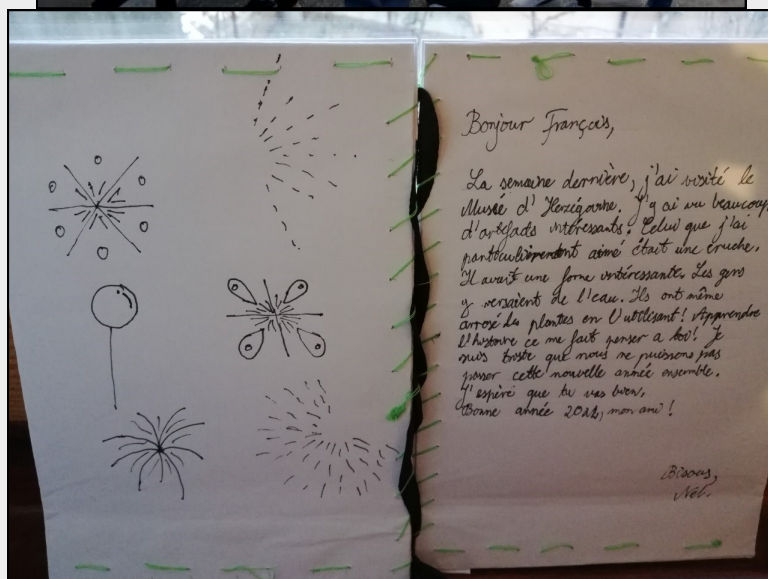 Bonjour François,
La semaine dernière, j'ai visité le
Musée d'Herzégovine. J'y ai vu beaucoup
d'artefacts intéressants. Celui que j'ai
particulièrement aimé était une cruche.
Il avait une forme intéressante. Les gens
y versaient de l'eau. Ils ont même
arrosé les plantes en l'utilisant! Apprendre
l'histoire ce me fait penser a toi! Je
suis triste que nous ne puissons pas
passer cette nouvelle année ensemble.
J'espère que tu vas bien.
Bonne année mon ami!
Bisous,